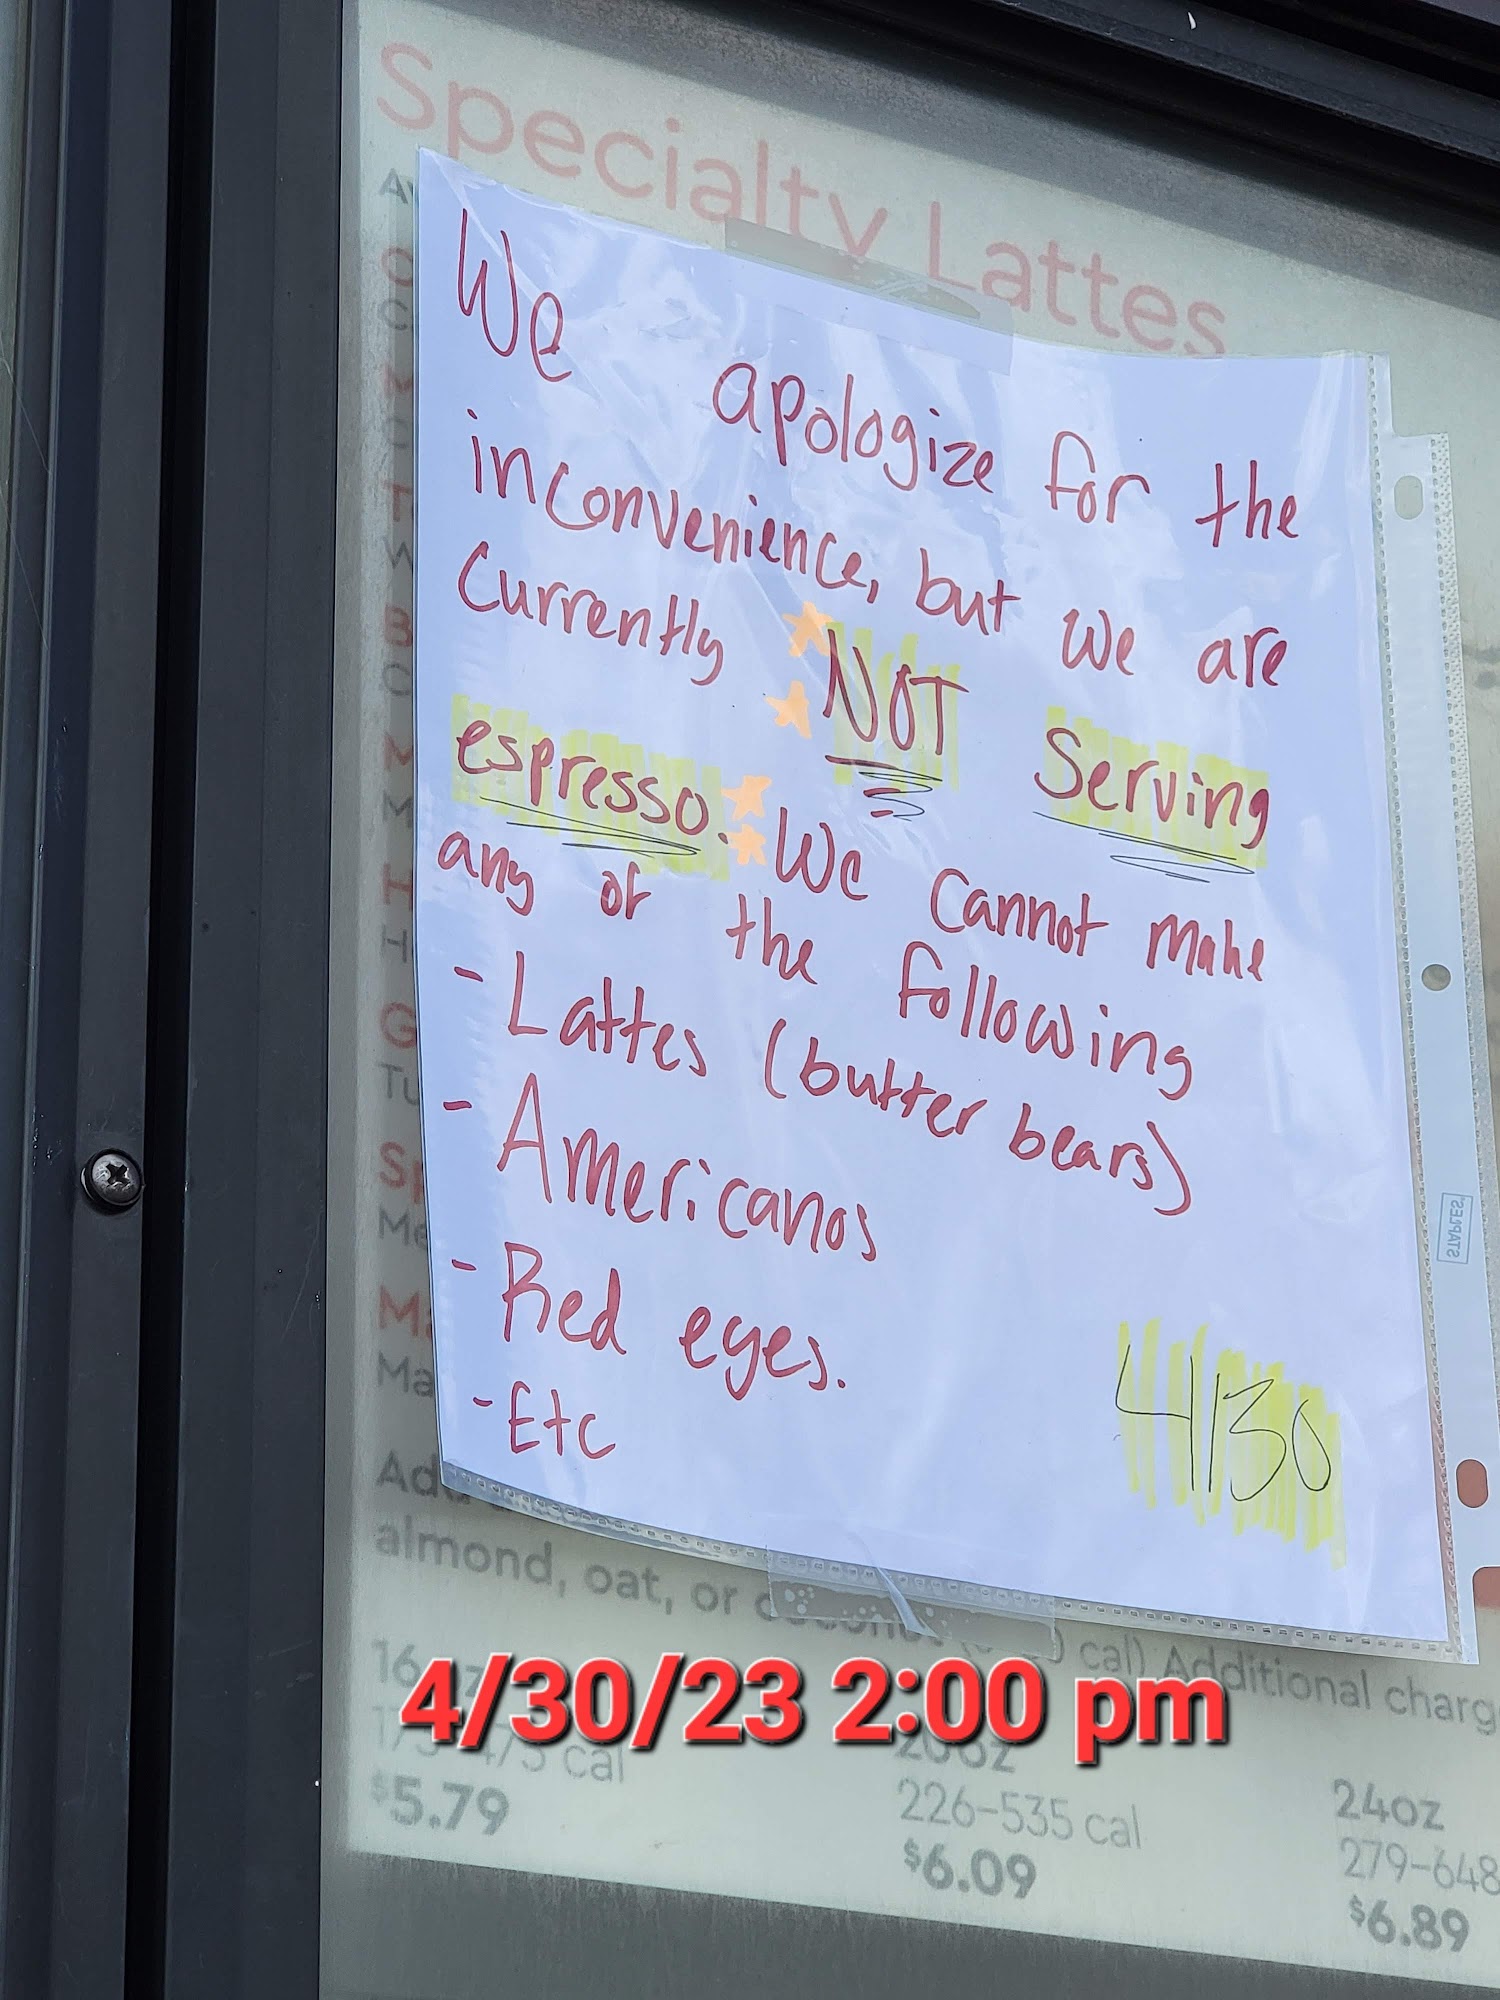 Specialty Lattes
We apologize for the
inconvenience, but we are
currently NOT Serving
espresso. We cannot make
any of the following
- Lattes (butter bears)
- Americanos
- Red eyes.
- Etc
4/30
STAPLES
almond, oat, or coconut
cal) Additional charg
4/30/23 2:00 pm
16oz
175-475 cal
$5.79
20oz
226-535 cal
$6.09
24oz
279-648
$6.89